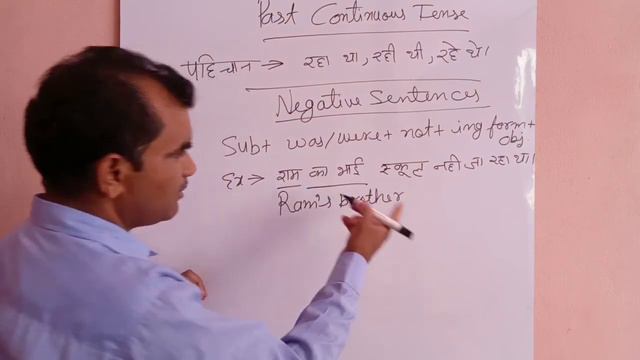 Past Continuous Tense
पहिचान → रहा था, रही थी, रहे थे।
Negative Sentences
Sub+ was/were + not + ing form + obj
Ex → राम का भाई स्कूल नही जा रहा था।
Ram's brother